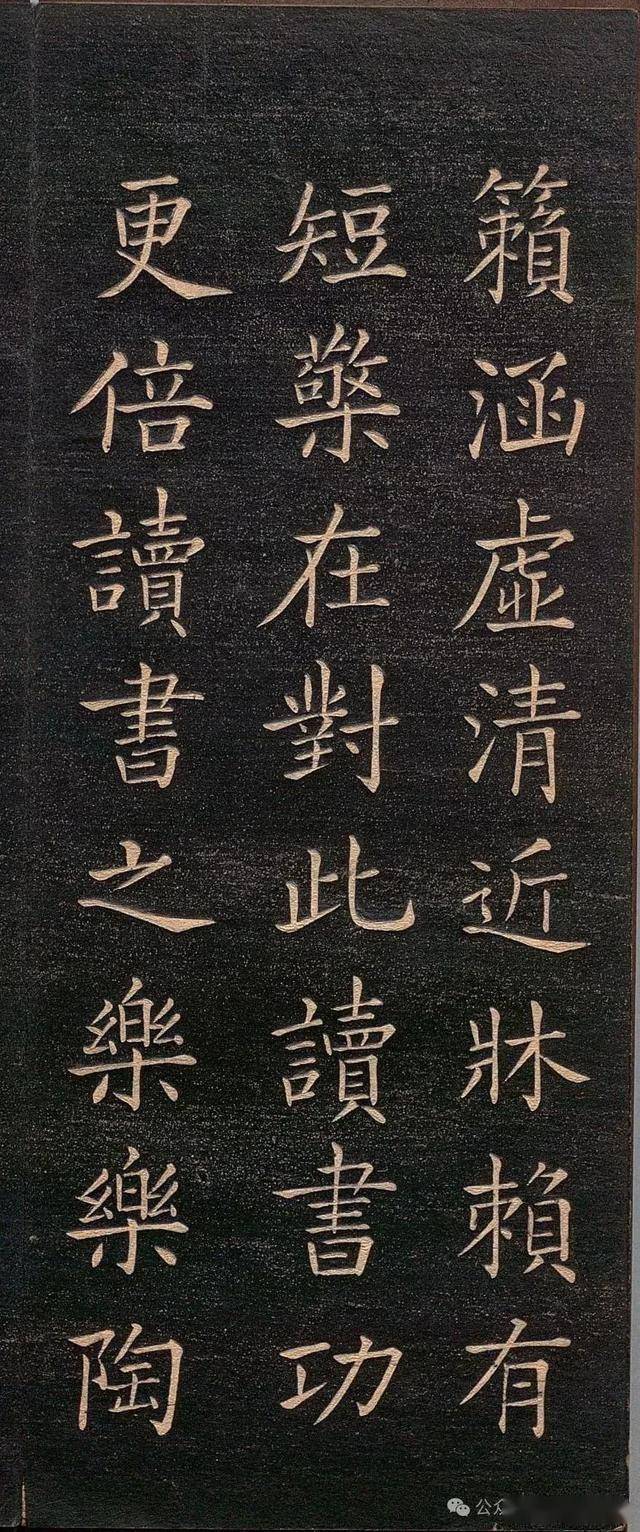 籟涵虛清近牀賴有
短檠在對此讀書功
更倍讀書之樂樂陶
公众